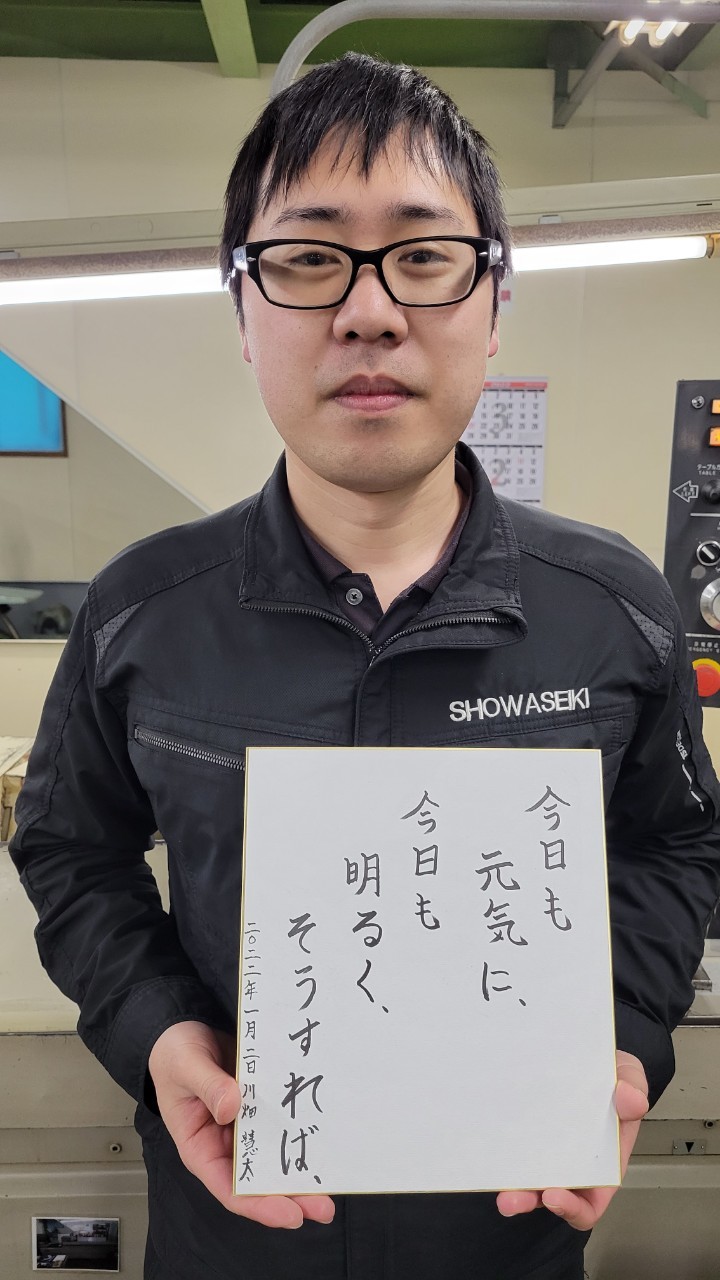 今日も
元気に、
今日も
明るく、
そうすれば、
二〇二二年一月二日 川畑 慧太
SHOWASEIKI
3
2
TABLE